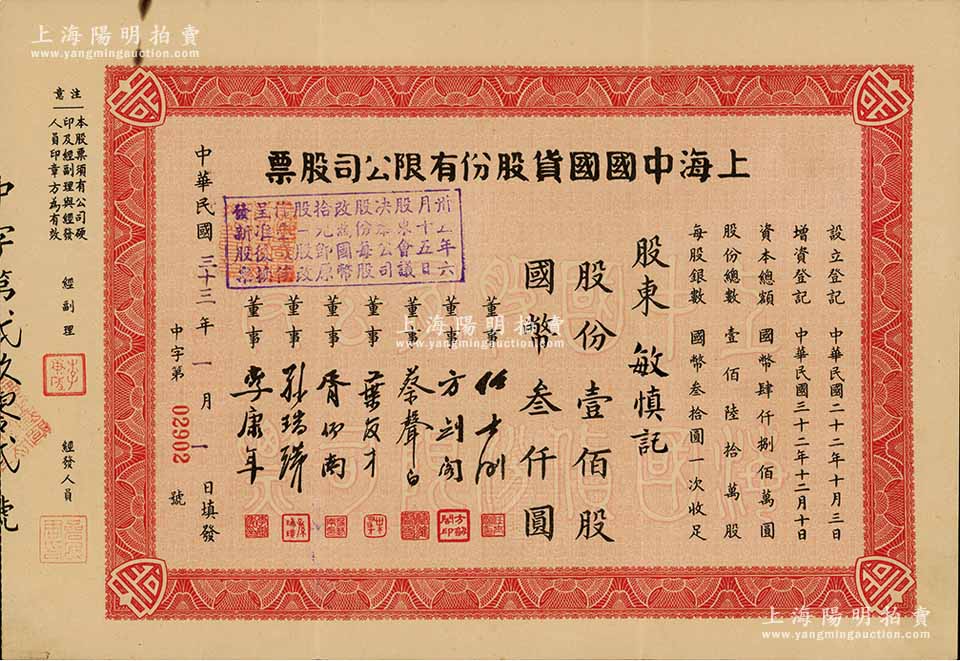 上海陽明拍賣
www.yangmingauction.com
上海陽明拍賣
www.yangmingauction.com
上海中國國貨股份有限公司股票
設立登記 中華民國二十二年十月三日
增資登記 中華民國三十二年十二月十日
資本總額 國幣肆仟捌佰萬圓
股份總數 壹佰陸拾萬股
每股銀數 國幣叁拾圓一次收足
股東 敏慎記
股份壹佰股
國幣叁仟圓
董事
董事 方剑阁
董事 蔡聲白
董事 葉友才
董事 胥仰南
董事 孫瑞璜
董事 李康年
中華民國三十三年一月一日填發
中字第 02902 號
卅五年六
月十五日
股東會議
決本公司
股份每股
改為國幣
拾元即原
股一股改
呈准後換
發新股票
注意
本股票須有公司硬
印及經副理與經發
人員印章方為有效
經副理
經發人員
中字第貳玖零貳號
上海陽明拍賣
www.yangmingauction.com
上海陽明拍賣
www.yangmingauction.com